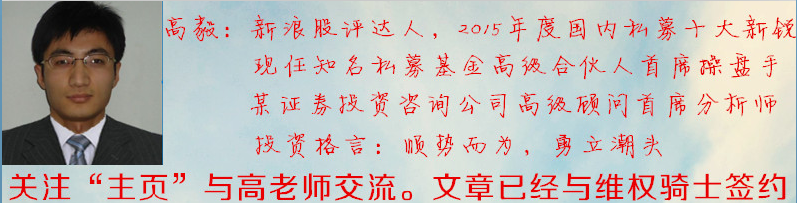 高毅：新浪股评达人，2015年度国内私募十大新锐
现任知名私募基金高级合伙人首席操盘手
某证券投资咨询公司高级顾问首席分析师
投资格言：顺势而为，勇立潮头
关注“主页”与高老师交流。文章已经与维权骑士签约